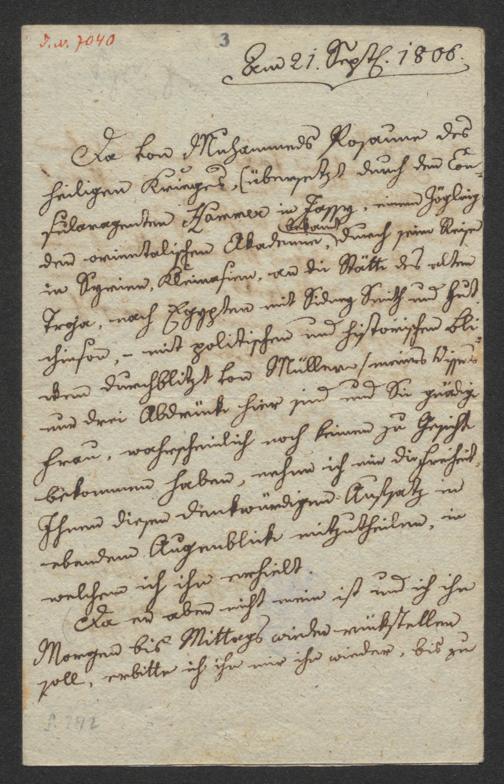 I. N. 7040
3
Am 21. Sept. 1806.
Da von Muhammeds Posaune des
heiligen Krieges, (übersetzt durch den Con-
sularagenten Hammer in Jassy, einem Zögling
der orientalischen Akademie, bekannt durch seine Reise
in Syrien, Kleinasien, an die Stätte des alten
Troja, nach Egypten mit Sidney Smith und Hut-
chinson, – mit politischen und historischen Bli-
cken durchblitzt von Müller / meines Wissens
nur drei Abdrücke hier sind und Sie gnädige
Frau, wahrscheinlich noch keinen zu Gesicht
bekommen haben, nehme ich mir die Freiheit,
Ihnen diesen denkwürdigen Aufsatz in
ebendem Augenblick mitzutheilen, in
welchem ich ihn erhielt.
Da er aber nicht mein ist und ich ihn
Morgen bis Mittags wieder rückstellen
soll, erbitte ich ihn mir wieder, bis zu